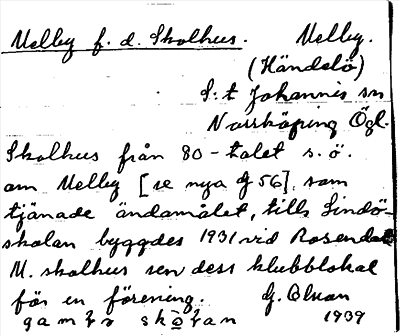 Melby f. d. Skolhus. Melby.
(Händelö)
S:t Johannis sn
Norrköping Ögl.
Skolhus från 80-talet s. ö.
om Melby [se nya G 56], som
tjänade ändamålet, tills Lindö-
skolan byggdes 1931 vid Rosendal
M. skolhus sen dess klubblokal
för en förening. G. Olsson
gamla skolan 1939